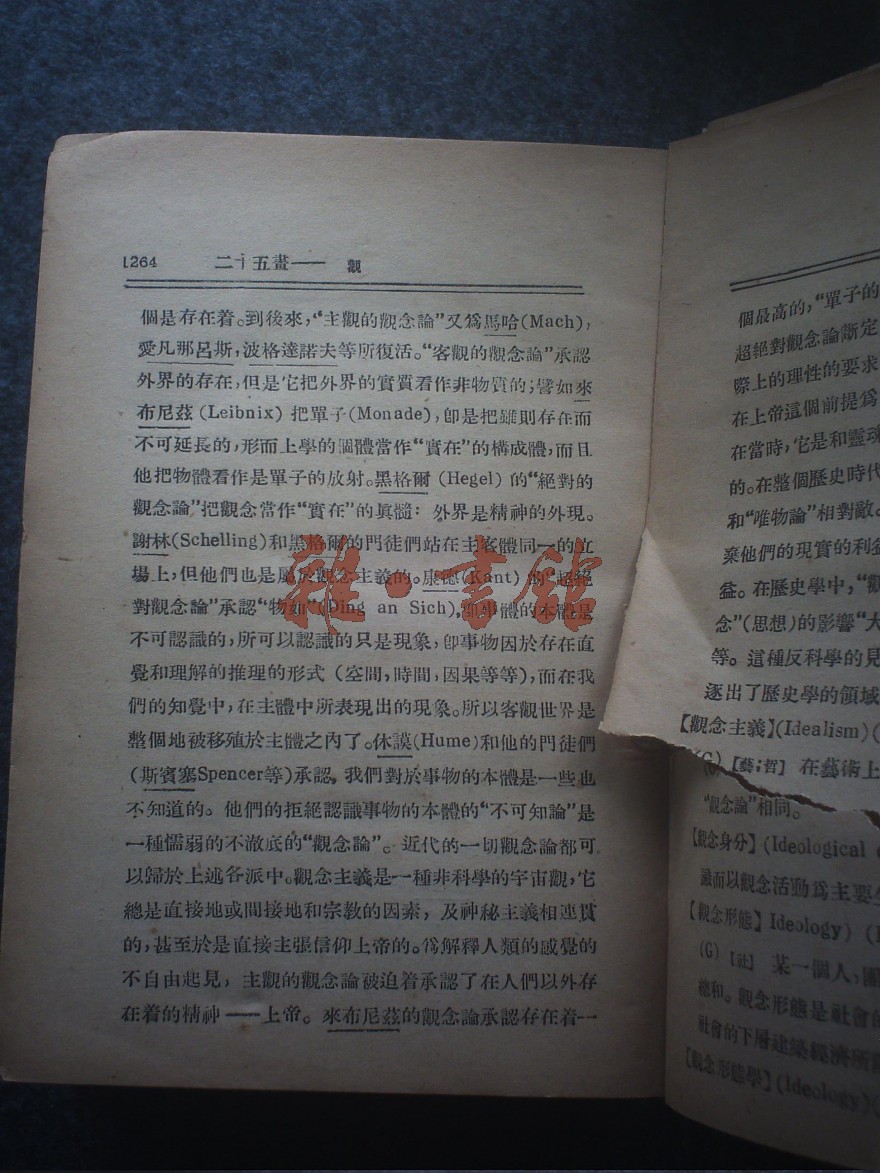 1264　　二十五畫——觀
個是存在着。到後來,“主觀的觀念論”又爲馬哈(Mach),
愛凡那呂斯,波格達諾夫等所復活。“客觀的觀念論”承認
外界的存在,但是它把外界的實質看作非物質的;譬如來
布尼茲(Leibnix)把單子(Monade),卽是把雖則存在而
不可延長的,形而上學的個體當作“實在”的構成體,而且
他把物體看作是單子的放射。黑格爾(Hegel)的“絕對的
觀念論”把觀念當作“實在”的眞髓: 外界是精神的外現。
謝林(Schelling)和黑格爾的門徒們站在主客體同一的立
場上,但他們也是屬於觀念主義的。康德(Kant)的“超絕
對觀念論”承認“物如”(Ding an Sich),卽事體的本體是
不可認識的,所可以認識的只是現象,卽事物因於存在直
覺和理解的推理的形式(空間,時間,因果等等),而在我
們的知覺中,在主體中所表現出的現象。所以客觀世界是
整個地被移殖於主體之內了。休謨(Hume)和他的門徒們
(斯賓塞Spencer等)承認,我們對於事物的本體是一些也
不知道的。他們的拒絕認識事物的本體的“不可知論”是
一種懦弱的不澈底的“觀念論”。近代的一切觀念論都可
以歸於上述各派中。觀念主義是一種非科學的宇宙觀,它
總是直接地或間接地和宗教的因素,及神秘主義相連貫
的,甚至於是直接主張信仰上帝的。爲解釋人類的感覺的
不自由起見,主觀的觀念論被迫着承認了在人們以外存
在着的精神——上帝。來布尼茲的觀念論承認存在着一
雜·書館
個最高的,“單子的
超絕對觀念論斷定
際上的理性的要求
在上帝這個前提爲
在當時,它是和靈魂
的。在整個歷史時代
和“唯物論”相對敵。
棄他們的現實的利益
益。在歷史學中,“觀
念”(思想)的影響“大
等。這種反科學的見
逐出了歷史學的領域
【觀念主義】(Idealism)(
(G)【藝;哲】在藝術上
“觀念論”相同。
【觀念身分】(Ideological
識而以觀念活動爲主要
【觀念形態】Ideology)
(G)【社】某一個人,團
總和。觀念形態是社會的
社會的下層建築經濟所
【觀念形態學】(Ideology)